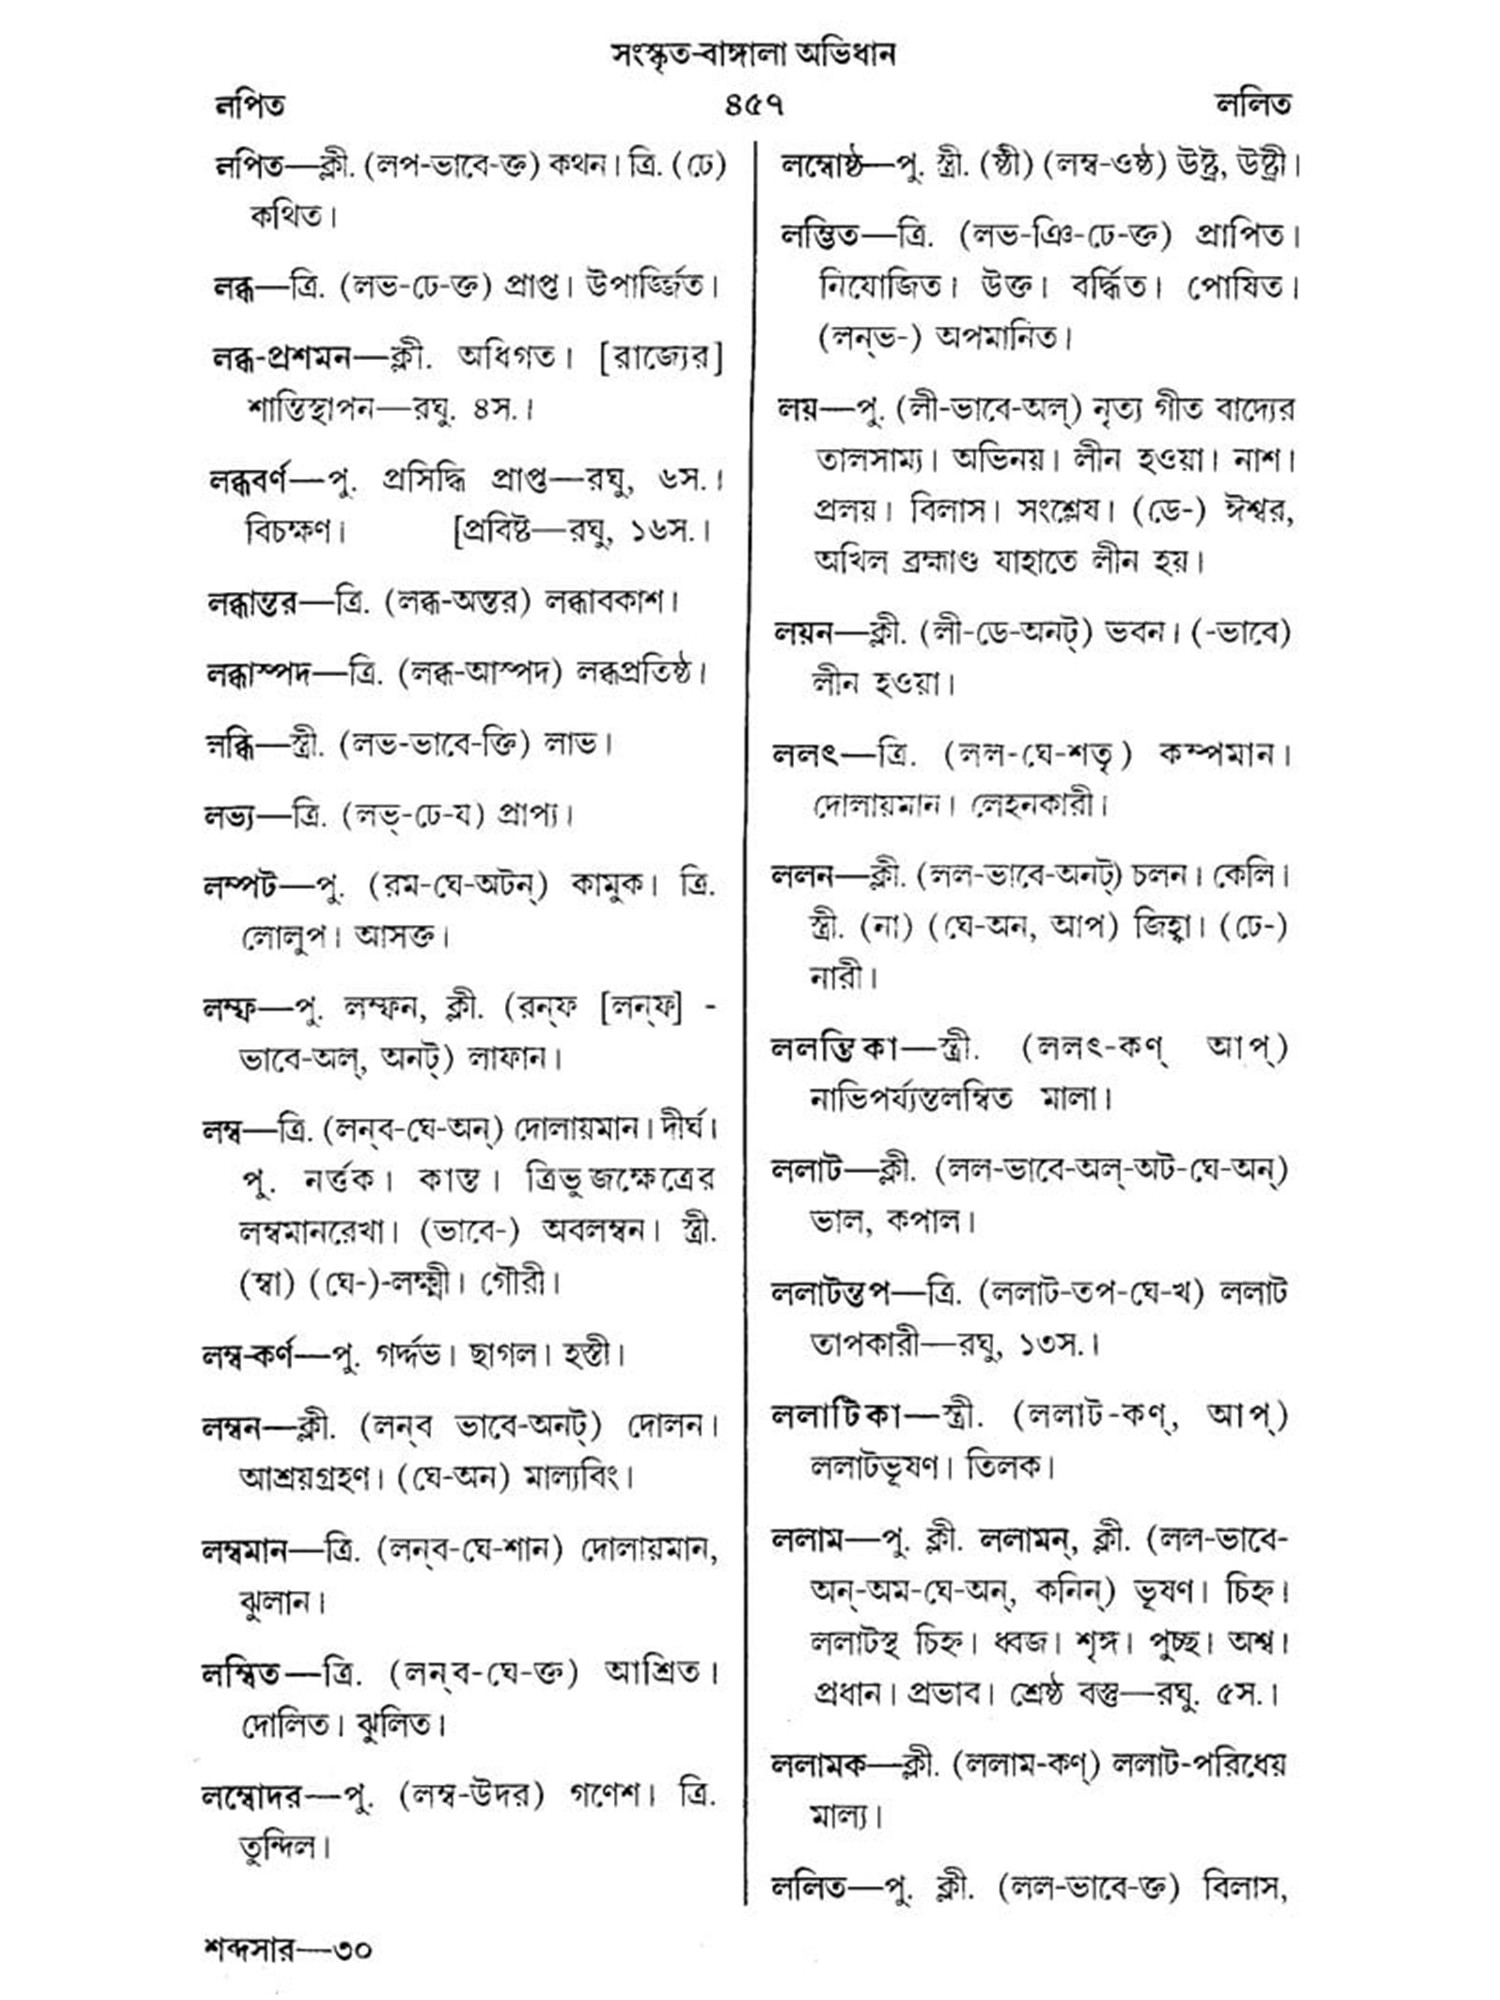 সংস্কৃত-বাঙ্গালা অভিধান
লপিত ৪৫৭ ললিত
লপিত—ক্লী. (লপ-ভাবে-ক্ত) কথন। ত্রি. (ঢে)
কথিত।
লব্ধ—ত্রি. (লভ-ঢে-ক্ত) প্রাপ্ত। উপার্জ্জিত।
লব্ধ-প্রশমন—ক্লী. অধিগত। [রাজ্যের]
শান্তিস্থাপন—রঘু. ৪স.।
লব্ধবর্ণ—পু. প্রসিদ্ধি প্রাপ্ত—রঘু, ৬স.।
বিচক্ষণ। [প্রবিষ্ট—রঘু, ১৬স.।
লব্ধান্তর—ত্রি. (লব্ধ-অন্তর) লব্ধাবকাশ।
লব্ধাস্পদ—ত্রি. (লব্ধ-আস্পদ) লব্ধপ্রতিষ্ঠ।
লব্ধি—স্ত্রী. (লভ-ভাবে-ক্তি) লাভ।
লভ্য—ত্রি. (লভ্-ঢে-য) প্রাপ্য।
লম্পট—পু. (রম-ঘে-অটন্) কামুক। ত্রি.
লোলুপ। আসক্ত।
লম্ফ—পু. লম্ফন, ক্লী. (রন্‌ফ [লন্‌ফ] -
ভাবে-অল্, অনট্) লাফান।
লম্ব—ত্রি. (লন্‌ব-ঘে-অন্) দোলায়মান। দীর্ঘ।
পু. নর্ত্তক। কান্ত। ত্রিভুজক্ষেত্রের
লম্বমানরেখা। (ভাবে-) অবলম্বন। স্ত্রী.
(ম্বা) (ঘে-)-লক্ষ্মী। গৌরী।
লম্ব-কর্ণ—পু. গর্দ্দভ। ছাগল। হস্তী।
লম্বন—ক্লী. (লন্‌ব ভাবে-অনট্) দোলন।
আশ্রয়গ্রহণ। (ঘে-অন) মাল্যবিং।
লম্বমান—ত্রি. (লন্‌ব-ঘে-শান) দোলায়মান,
ঝুলান।
লম্বিত—ত্রি. (লন্‌ব-ঘে-ক্ত) আশ্রিত।
দোলিত। ঝুলিত।
লম্বোদর—পু. (লম্ব-উদর) গণেশ। ত্রি.
তুন্দিল।
শব্দসার—৩০
লম্বোষ্ঠ—পু. স্ত্রী. (ষ্ঠী) (লম্ব-ওষ্ঠ) উষ্ট্র, উষ্ট্রী।
লম্ভিত—ত্রি. (লভ-ঞি-ঢে-ক্ত) প্রাপিত।
নিযোজিত। উক্ত। বর্দ্ধিত। পোষিত।
(লন্‌ভ-) অপমানিত।
লয়—পু. (লী-ভাবে-অল্) নৃত্য গীত বাদ্যের
তালসাম্য। অভিনয়। লীন হওয়া। নাশ।
প্রলয়। বিলাস। সংশ্লেষ। (ডে-) ঈশ্বর,
অখিল ব্রহ্মাণ্ড যাহাতে লীন হয়।
লয়ন—ক্লী. (লী-ডে-অনট্) ভবন। (-ভাবে)
লীন হওয়া।
ললৎ—ত্রি. (লল-ঘে-শতৃ) কম্পমান।
দোলায়মান। লেহনকারী।
ললন—ক্লী. (লল-ভাবে-অনট্) চলন। কেলি।
স্ত্রী. (না) (ঘে-অন, আপ) জিহ্বা। (ঢে-)
নারী।
ললন্তিকা—স্ত্রী. (ললৎ-কণ্ আপ্)
নাভিপর্য্যন্তলম্বিত মালা।
ললাট—ক্লী. (লল-ভাবে-অল্-অট-ঘে-অন্)
ভাল, কপাল।
ললাটন্তপ—ত্রি. (ললাট-তপ-ঘে-খ) ললাট
তাপকারী—রঘু, ১৩স.।
ললাটিকা—স্ত্রী. (ললাট-কণ্, আপ্)
ললাটভূষণ। তিলক।
ললাম—পু. ক্লী. ললামন্, ক্লী. (লল-ভাবে-
অন্-অম-ঘে-অন্, কনিন্) ভূষণ। চিহ্ন।
ললাটস্থ চিহ্ন। ধ্বজ। শৃঙ্গ। পুচ্ছ। অশ্ব।
প্রধান। প্রভাব। শ্রেষ্ঠ বস্তু—রঘু. ৫স.।
ললামক—ক্লী. (ললাম-কণ্) ললাট-পরিধেয়
মাল্য।
ললিত—পু. ক্লী. (লল-ভাবে-ক্ত) বিলাস,